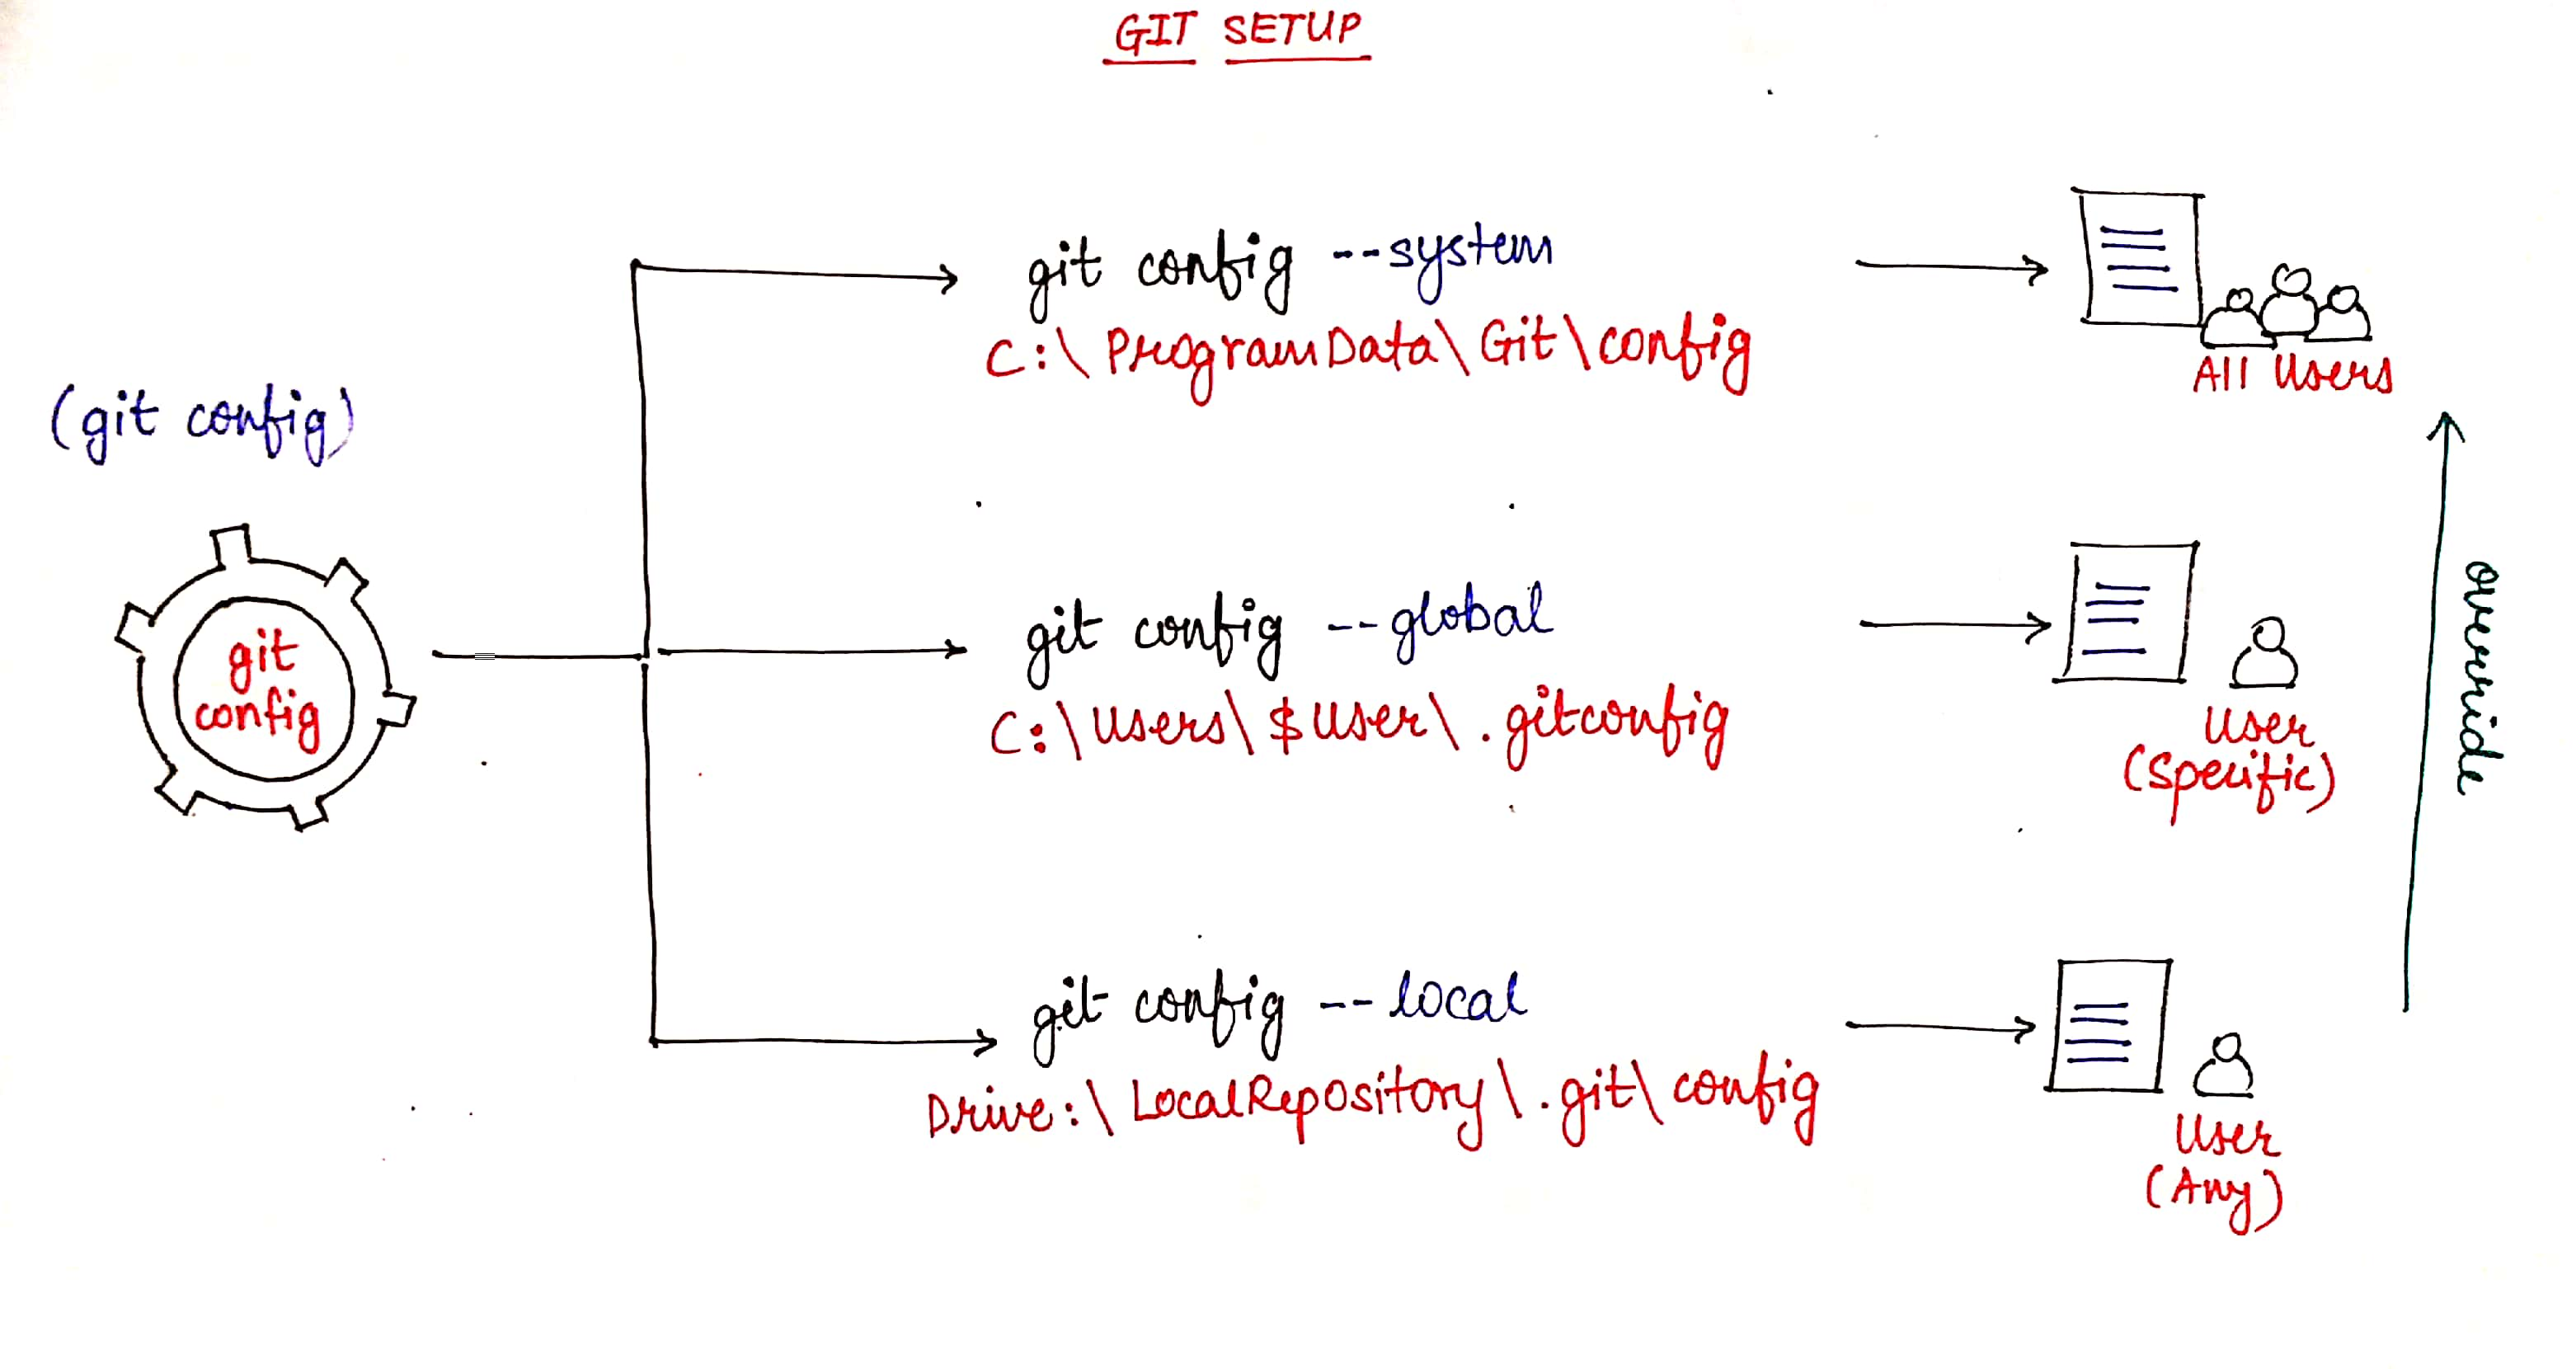 GIT SETUP
(git config)
git
config
git config --system
C:\ProgramData\Git\config
All Users
git config --global
C:\Users\$user\.gitconfig
User
(Specific)
git config --local
Drive:\LocalRepository\.git\config
User
(Any)
override